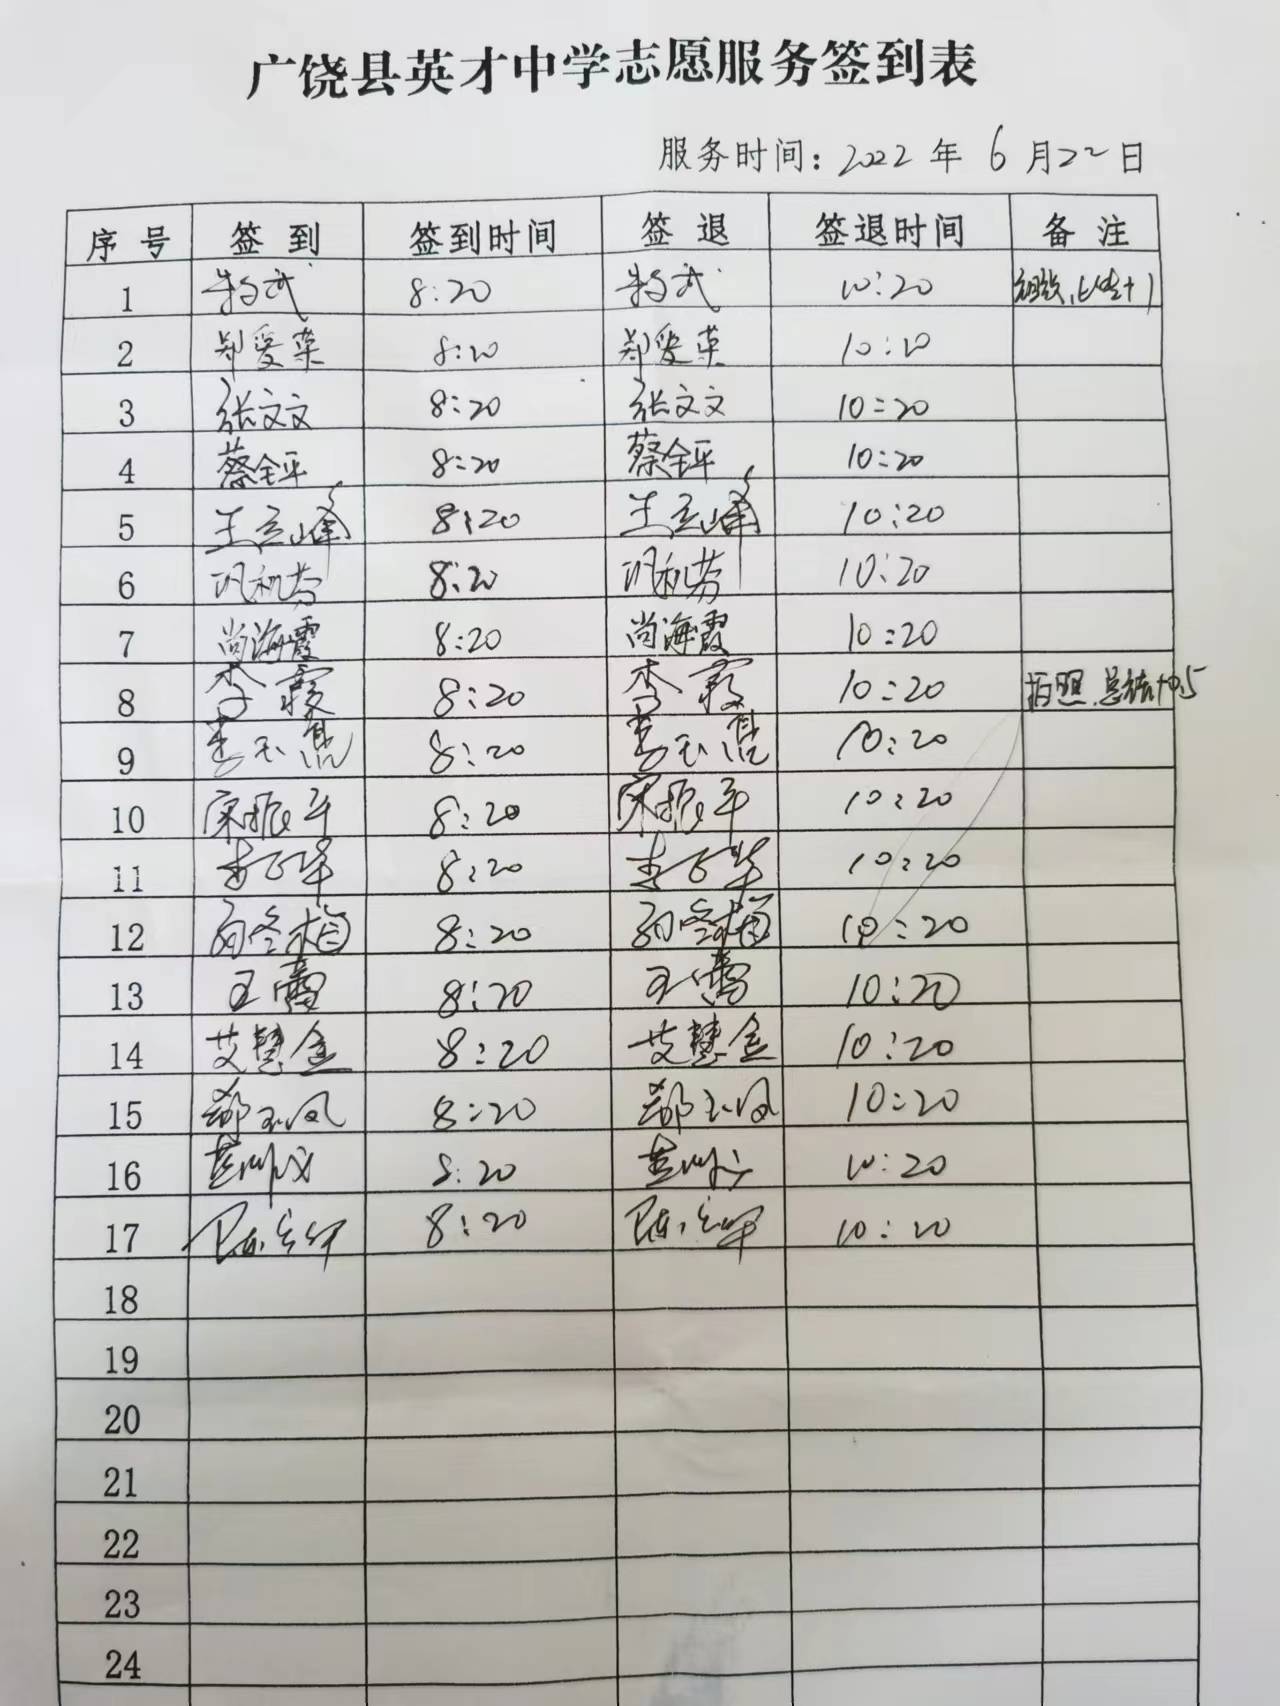 广饶县英才中学志愿服务签到表
服务时间：2022 年 6 月 22 日
序号 签到 签到时间 签退 签退时间 备注
1 8:20 10:20
2 郑爱菜 8:20 郑爱菜 10:20
3 张文文 8:20 张文文 10:20
4 蔡全平 8:20 蔡全平 10:20
5 王立峰 8:20 王立峰 10:20
6 巩机芬 8:20 巩机芬 10:20
7 尚海霞 8:20 尚海霞 10:20
8 李霞 8:20 李霞 10:20 拍照、总结+0.5
9 8:20 10:20
10 宋振平 8:20 宋振平 10:20
11 8:20 10:20
12 孙冬梅 8:20 孙冬梅 10:20
13 王霄 8:20 王霄 10:20
14 艾慧金 8:20 艾慧金 10:20
15 郝玉凤 8:20 郝玉凤 10:20
16 8:20 10:20
17 8:20 10:20
18
19
20
21
22
23
24